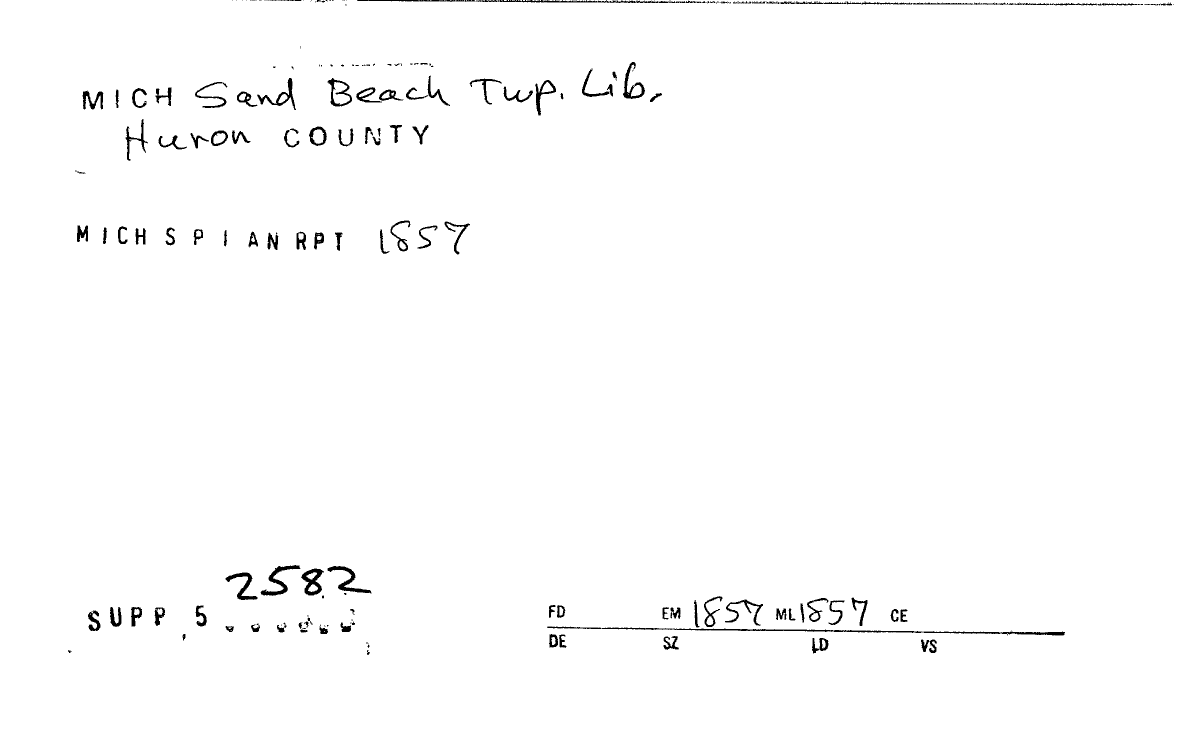 MICH Sand Beach Twp. Lib.
Huron COUNTY
MICH S P I AN RPT 1857
2582
SUPP 5
FD EM 1857 ML 1857 CE
DE SZ LD VS